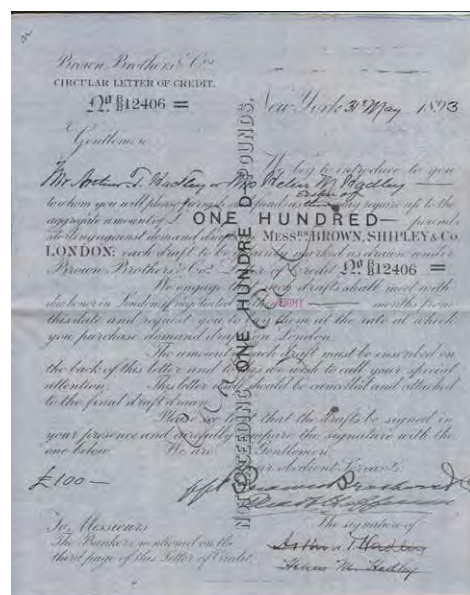 Brown Brothers & Co.
CIRCULAR LETTER OF CREDIT.
No. B12406 =
New York 31st May 1893
Gentlemen
We beg to introduce to you
Mr Arthur T. Hadley or Mrs Helen M. Hadley
to whom you will please furnish such funds as they may require up to the
aggregate amount of £ ONE HUNDRED pounds
sterling against demand drafts on MESSRS. BROWN, SHIPLEY & Co.
LONDON: each draft to be plainly marked as drawn under
Brown Brothers & Co's Letter of Credit No. B12406 =
We engage that such drafts shall meet with
due honor in London if negotiated within EIGHT months from
this date and request you to buy them at the rate at which
you purchase demand drafts on London.
The amount of each draft must be inscribed on
the back of this letter and to this we wish to call your special
attention. This letter itself should be cancelled and attached
to the final draft drawn.
Please see to it that the drafts be signed in
your presence and carefully compare the signature with the
one below. We are Gentlemen
Your obedient Servants
£100-
ppt Brown Brothers & Co
NOT EXCEEDING ONE HUNDRED POUNDS.
Cancelled
To Messieurs
The Bankers mentioned on the
third page of this Letter of Credit.
The signature of
Arthur T. Hadley
Helen M. Hadley